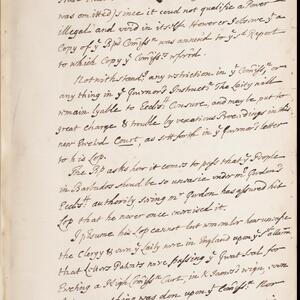 was omitted) since it coud not qualifie a Power
illegal and void in itself. However I observe y.e a
Copy of y.e B.ps Comiss.n was annexed to y.e 1st Report
to which Copy y.e Comiss.n referrd.
Notwithstand.g any restriction in y.e Comiss.n or
any thing in y.e Governors Instruct.ns The Laity naild
remain lyable to Eccles.ll Censure, and may be put to
great charge & trouble by vexatious Proceedings in this
new Erected Court, as is sett forth in y.e Governors letter
to his Lop.
The B.p asks how it comes to pass that y.e People
in Barbados should be so uneasie under M.r Gordons
Eccles.ll authority seeing M.r Gordon has assured his
Lop that he never once exercised it.
I presume his Lop cannot but remember how uneasie
the Clergy & even y.e Laity were in England upon y.e
that Letters Patents were passing y.e Great Seal for
Erecting a High Comiss.n Court, in K. James's reign, even
thing was done upon y.e Comiss.n